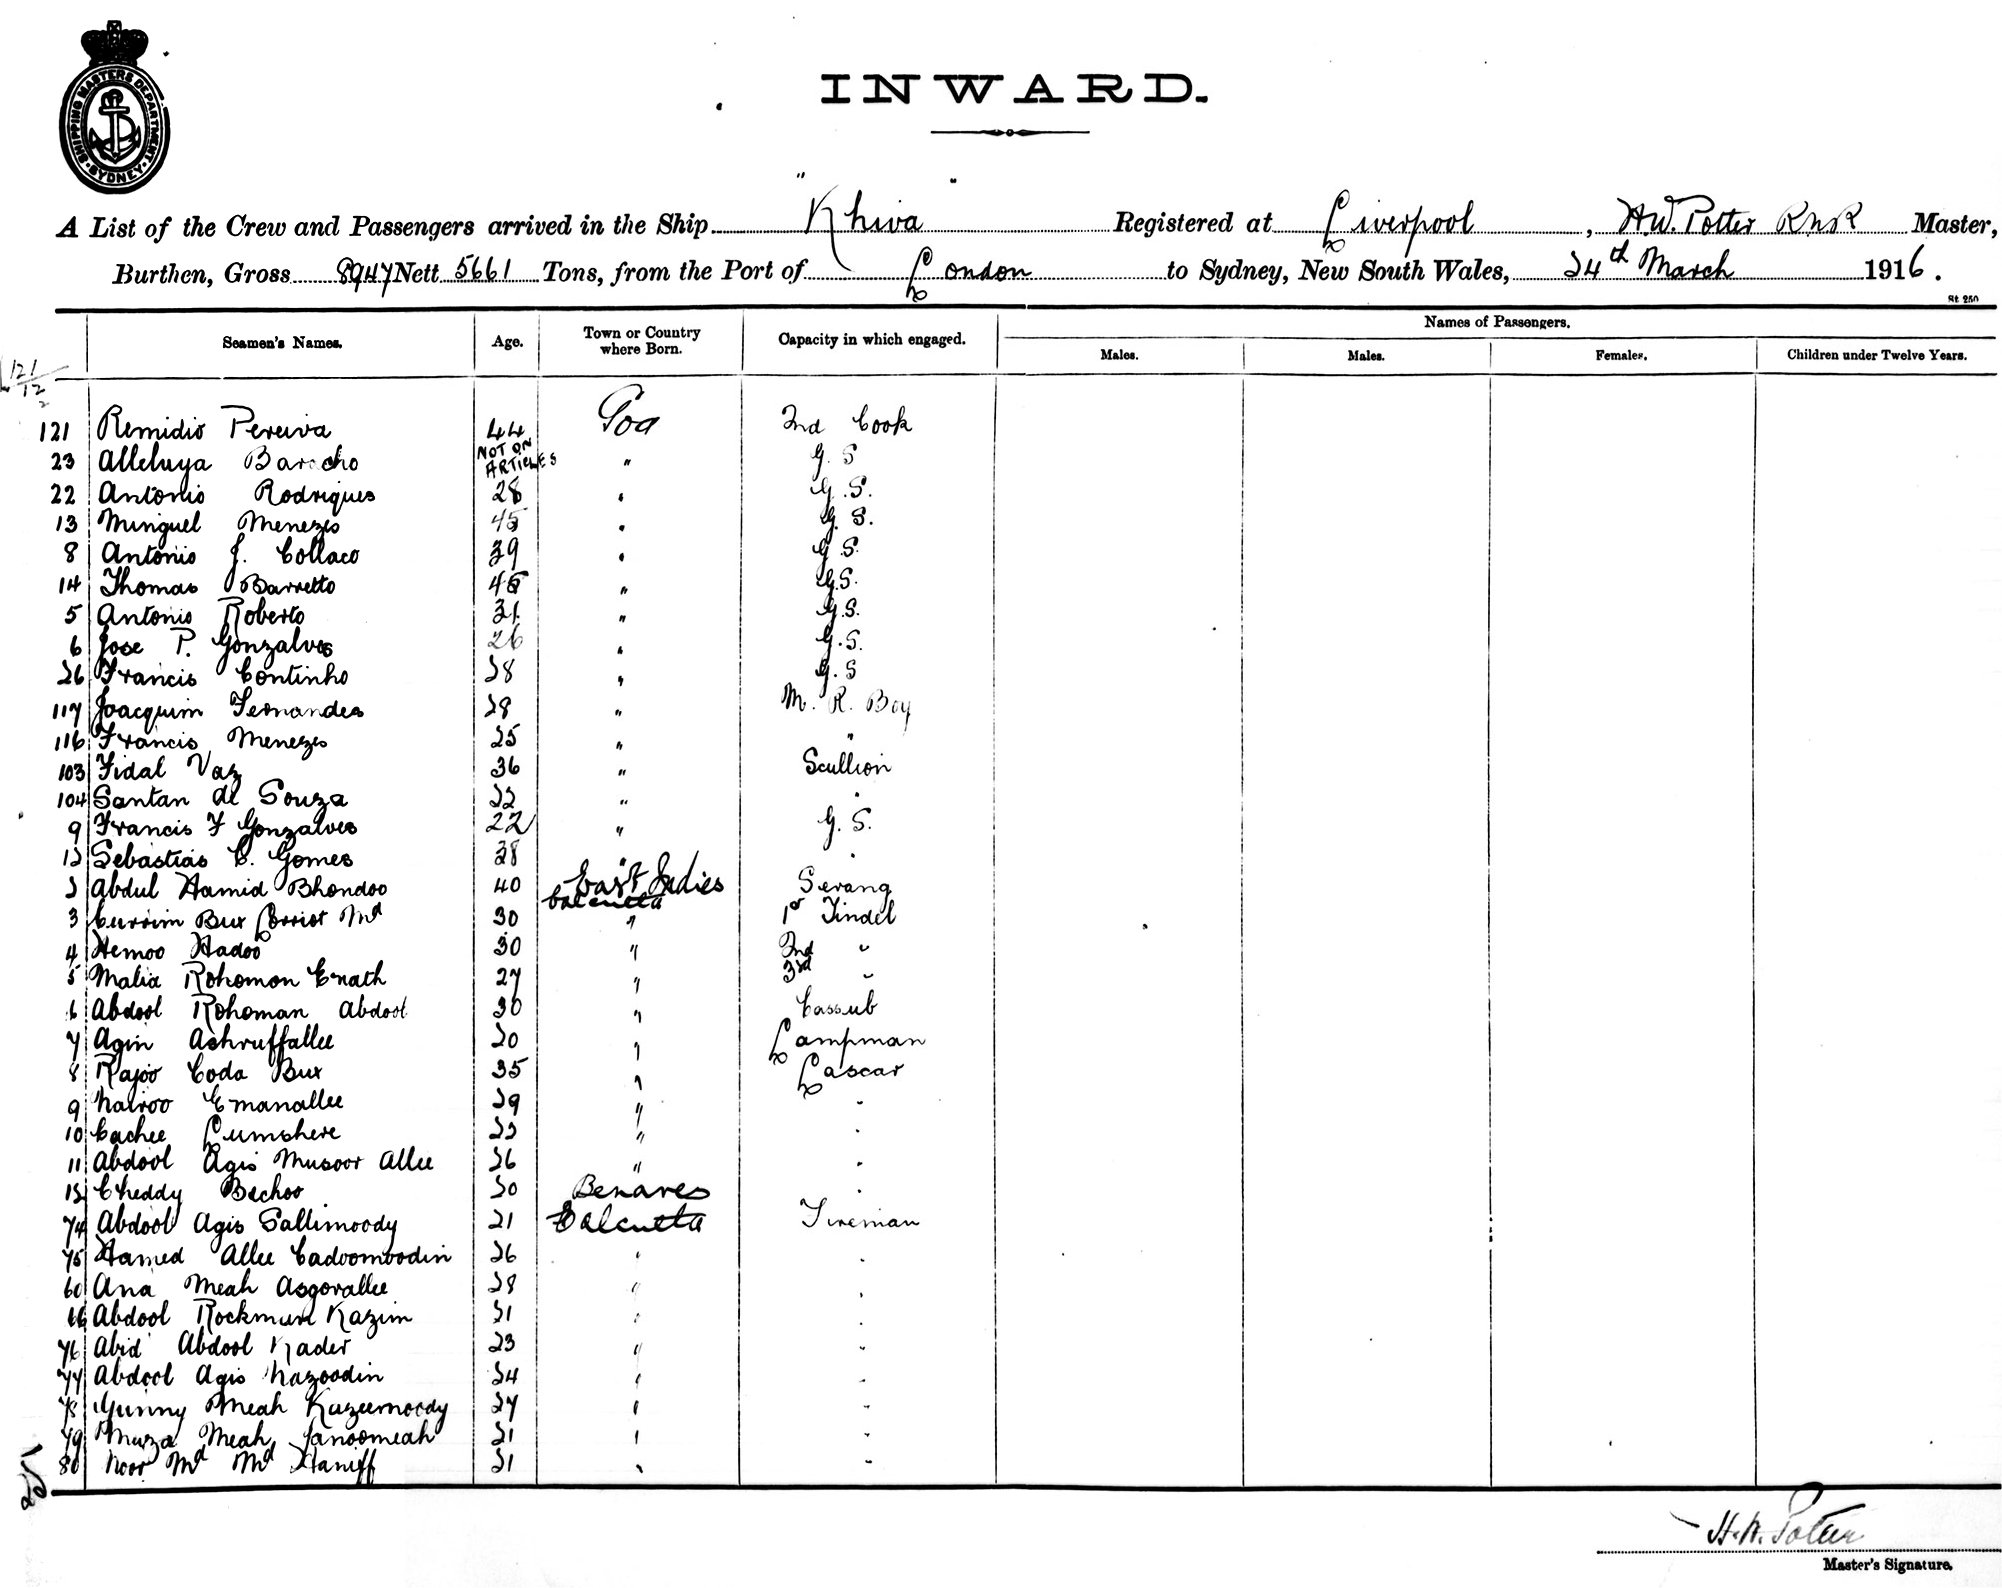 SHIPPING MASTERS DEPARTMENT
SYDNEY
INWARD.
A List of the Crew and Passengers arrived in the Ship "Khiva" Registered at Liverpool, H.W. Potter RNR Master,
Burthen, Gross 8947 Nett 5661 Tons, from the Port of London to Sydney, New South Wales, 24th March 1916.
St. 250
Seamen's Names. Age. Town or Country where Born. Capacity in which engaged. Names of Passengers.
Males. Males. Females. Children under Twelve Years.
121 Remidio Pereira 44 Goa 2nd Cook
23 Alleluya Barocho NOT ON ARTICLES " G.S
22 Antonio Rodrigues 28 " G.S.
13 Minguel Menezes 45 " G.S.
8 Antonio J. Collaco 39 " G.S.
14 Thomas Barretto 45 " G.S.
5 Antonio Roberto 31 " G.S.
6 Jose P. Gonzalves 26 " G.S.
26 Francis Continho 28 " G.S
117 Joacquim Fernandes 28 " M. R. Boy
116 Francis Menezes 25 " "
103 Fidal Vaz 36 " Scullion
104 Santan de Souza 22 " "
9 Francis F Gonzalves 22 " G.S.
12 Sebastiao C. Gomes 38 " "
2 Abdul Hamid Bhondoo 40 East Indies Calcutta Serang
3 Currim Bux Corriot Md 30 " 1st Tindel
4 Hemoo Hadoo 30 " 2nd "
5 Malia Rohomon Enath 27 " 3rd "
6 Abdool Rohoman Abdool 30 " Cassub
7 Agin Ashruffallee 20 " Lampman
8 Rajoo Coda Bux 35 " Lascar
9 Nairoo Emanallee 29 " "
10 Cachee Lumshere 22 " "
11 Abdool Agis Musoor Allee 26 " "
12 Cheddy Bechoo 20 Benares "
74 Abdool Agis Sallimoody 21 Calcutta Fireman
75 Hamed Allee Cadoomoodin 26 " "
60 Ana Meah Asgorallee 28 " "
66 Abdool Rockmun Kazim 21 " "
76 Abid Abdool Kader 23 " "
77 Abdool Agis Nazoodin 24 " "
78 Gunny Meah Kazeemoody 27 " "
79 Murza Meah Janoomeah 21 " "
80 Noor Md Md Haniff 21 " "
H.W. Potter
Master's Signature.